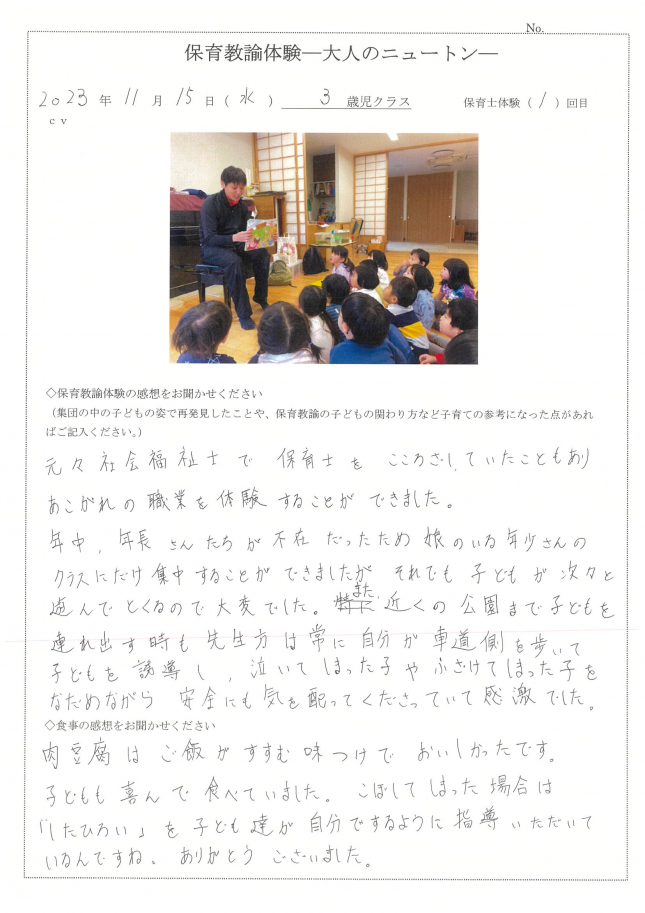 No.
保育教諭体験―大人のニュートン―
2023 年 11 月 15 日（ 水 ） 3 歳児クラス 保育士体験（ 1 ）回目
ｃｖ
◇保育教諭体験の感想をお聞かせください
（集団の中の子どもの姿で再発見したことや、保育教諭の子どもの関わり方など子育ての参考になった点があれ
ばご記入ください。）
元々社会福祉士で 保育士を こころざしていたこともあり
あこがれの職業を体験することが できました。
年中、年長さんたちが不在だったため 娘のいる年少さんの
クラスにだけ集中することができましたが それでも 子どもが次々と
遊んでとくるので大変でした。また 近くの公園まで子どもを
連れ出す時も先生方は常に自分が車道側を歩いて
子どもを誘導し、泣いてしまった子やふざけてしまった子を
なだめながら 安全にも気を配ってくださっていて感激でした。
◇食事の感想をお聞かせください
肉豆腐はご飯がすすむ味つけで おいしかったです。
子どもも喜んで食べていました。こぼしてしまった場合は
「したひろい」を子ども達が自分でするように指導いただいて
いるんですね、ありがとうございました。